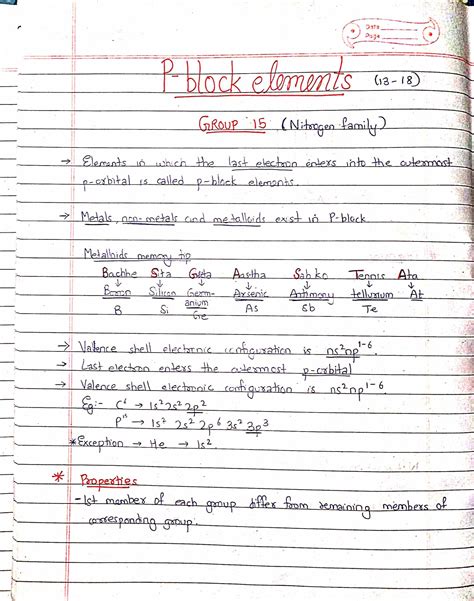 Date
Page
P-block elements (13-18)
GROUP 15 (Nitrogen family)
→ Elements in which the last electron enters into the outermost
p-orbital is called p-block elements.
→ Metals, non-metals and metalloids exist in P-block.
Metalloids memory tip
Bachhe Sita Geeta Aastha Sab ko Tennis Ata
↓ ↓ ↓ ↓ ↓ ↓ ↓
Boron Silicon Germ- Arsenic Antimony tellurium At
anium
B Si Ge As Sb Te
→ Valence shell electronic configuration is ns²np¹⁻⁶.
→ Last electron enters the outermost p-orbital
→ Valence shell electronic configuration is ns²np¹⁻⁶.
Eg:- C⁶ → 1s² 2s² 2p²
P¹⁵ → 1s² 2s² 2p⁶ 3s² 3p³
*Exception → He → 1s².
* Properties
- 1st member of each group differ from remaining members of
corresponding group.